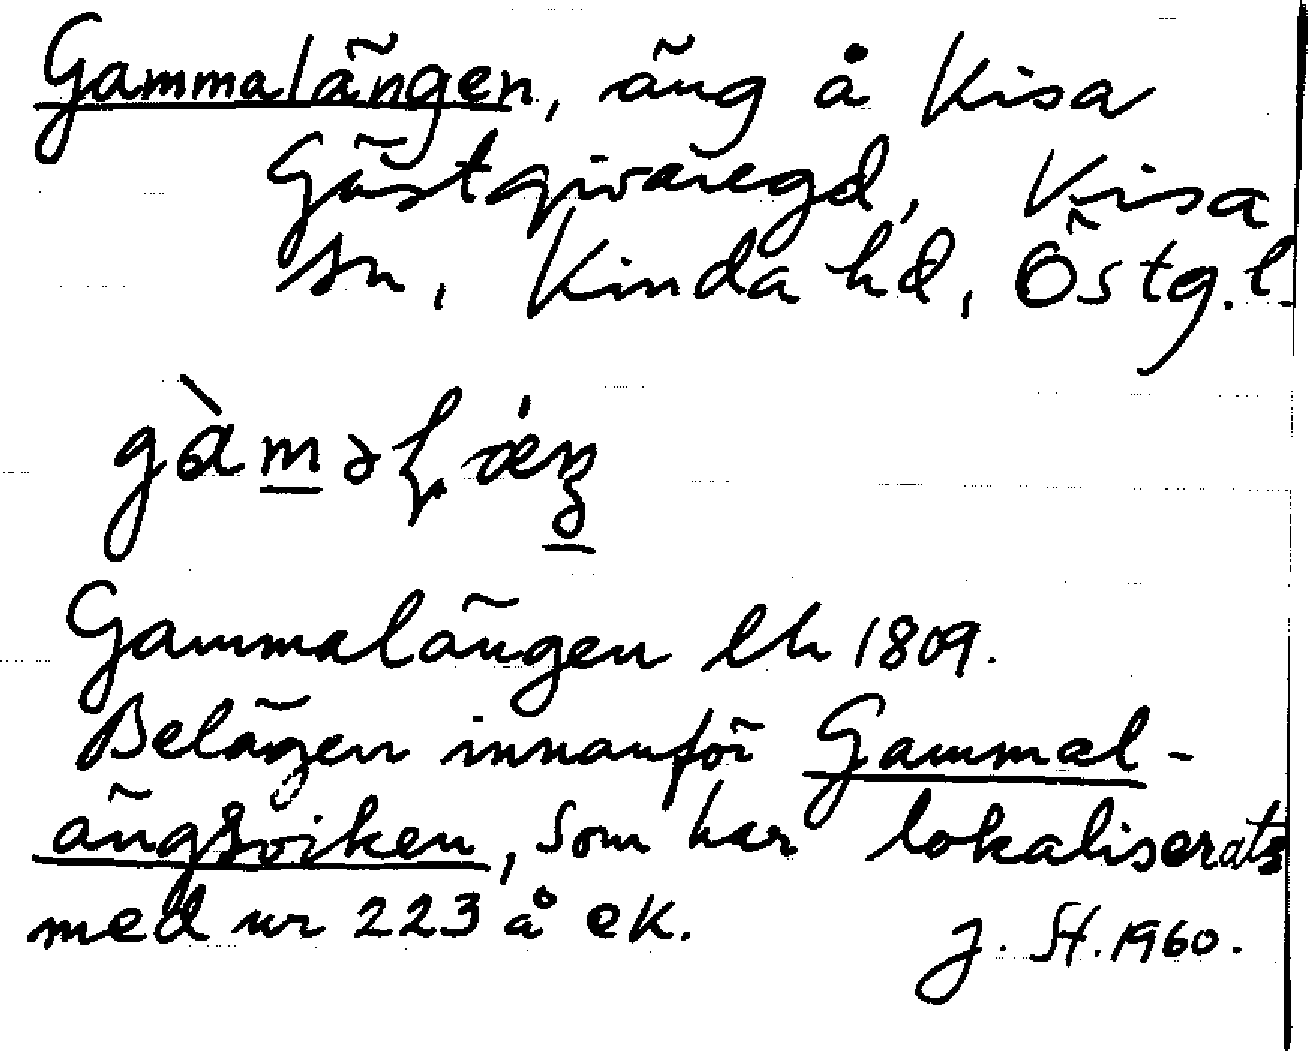 Gammalängen, äng å Kisa
Gästgivaregd, Kisa
sn, Kinda hd, Östg.l.
Gammalängen lh 1809.
Belägen innanför Gammal-
ängsviken, som har lokaliserats
med nr 223 å ek. J. St. 1960.